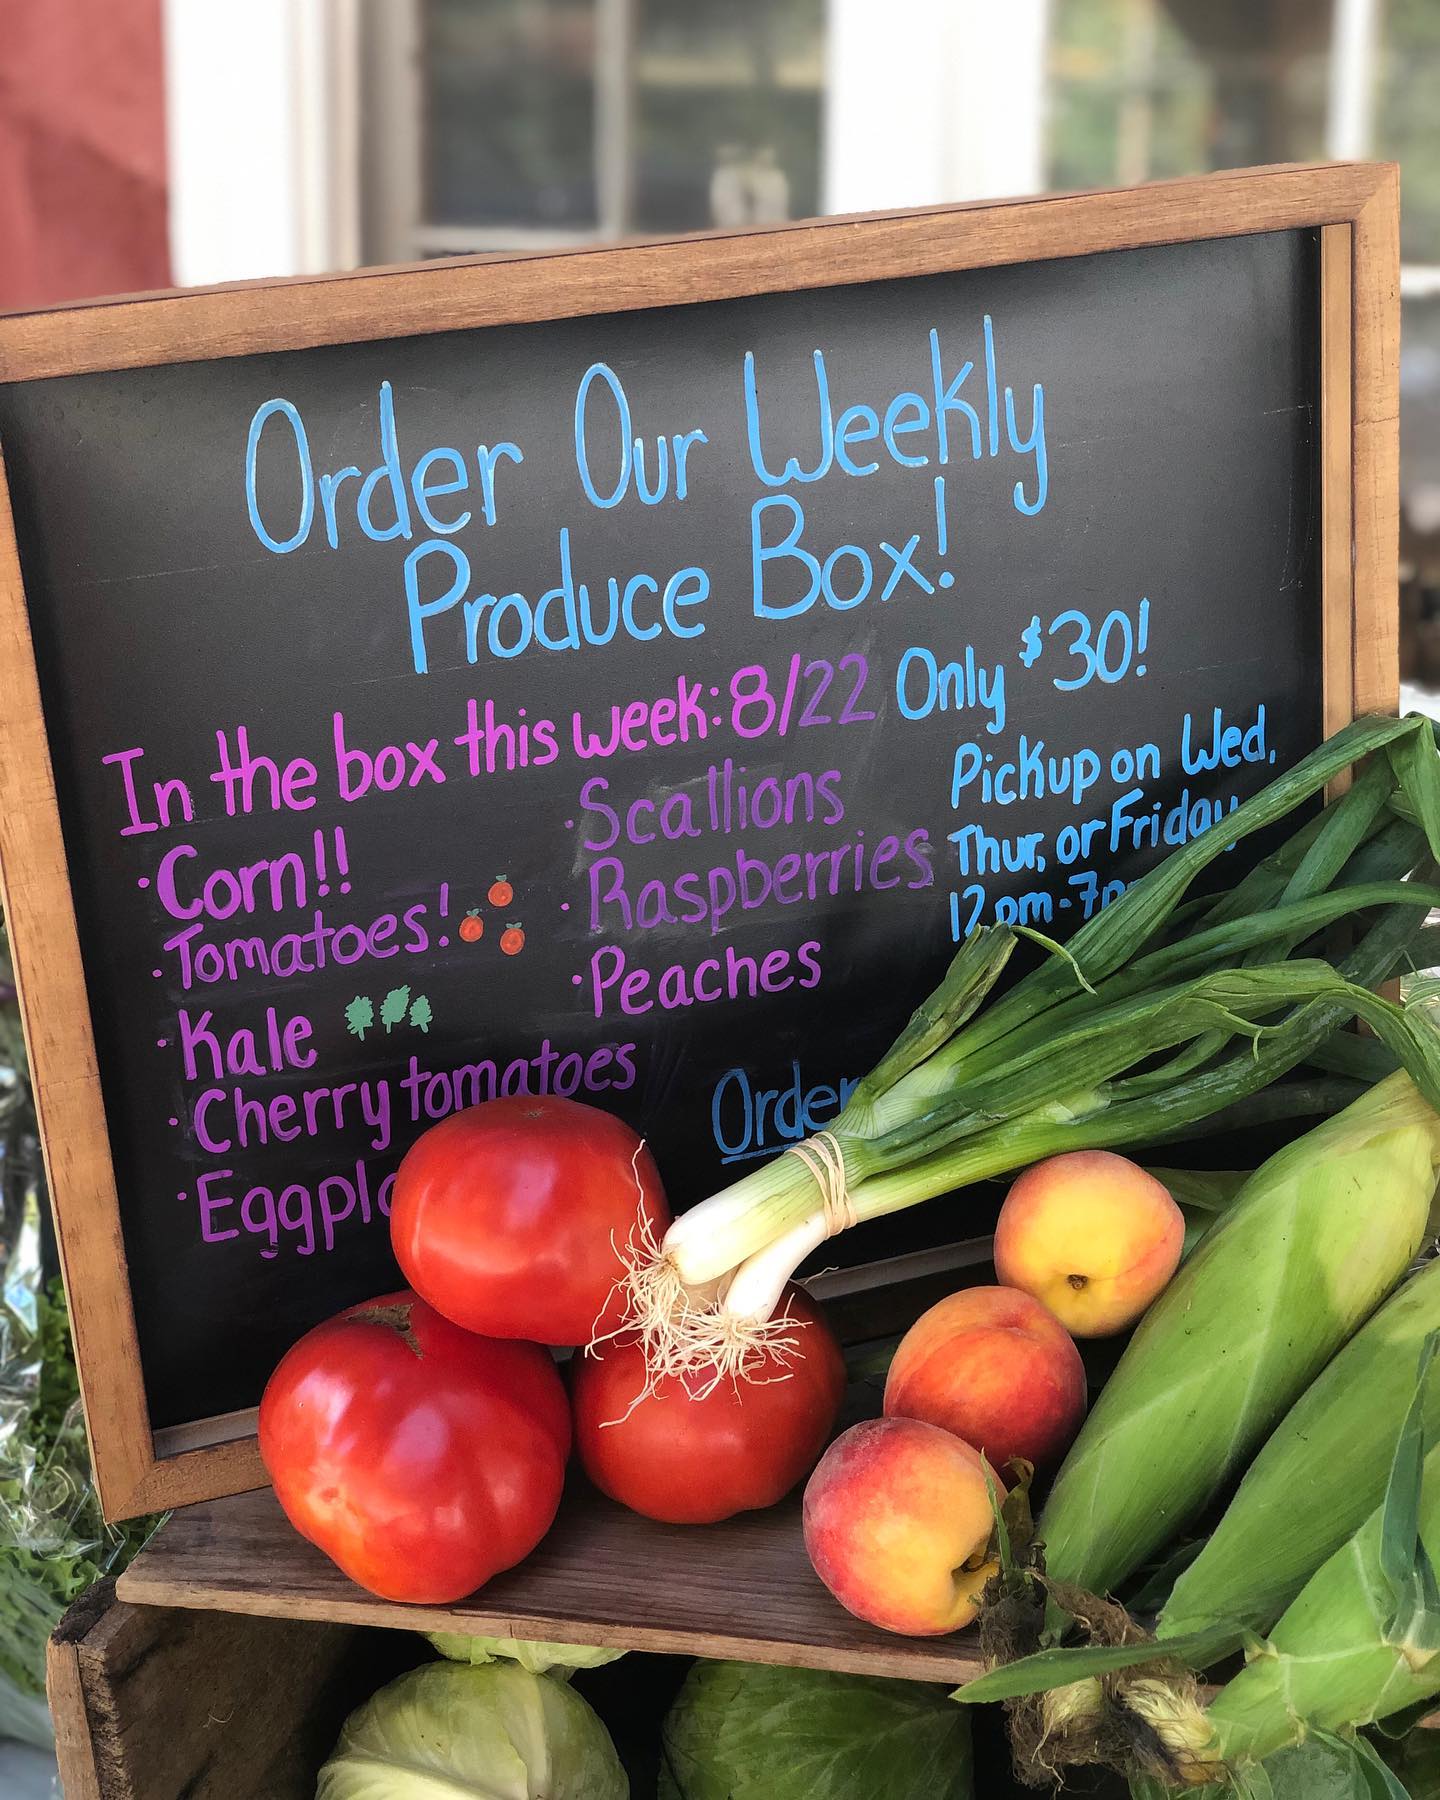 Order Our Weekly
Produce Box!
In the box this week: 8/22 Only $30!
·Corn!!
·Tomatoes!
·Kale
·Cherry tomatoes
·Scallions
·Raspberries
·Peaches
Pickup on Wed,
Thur, or Friday
12pm-7p
Order